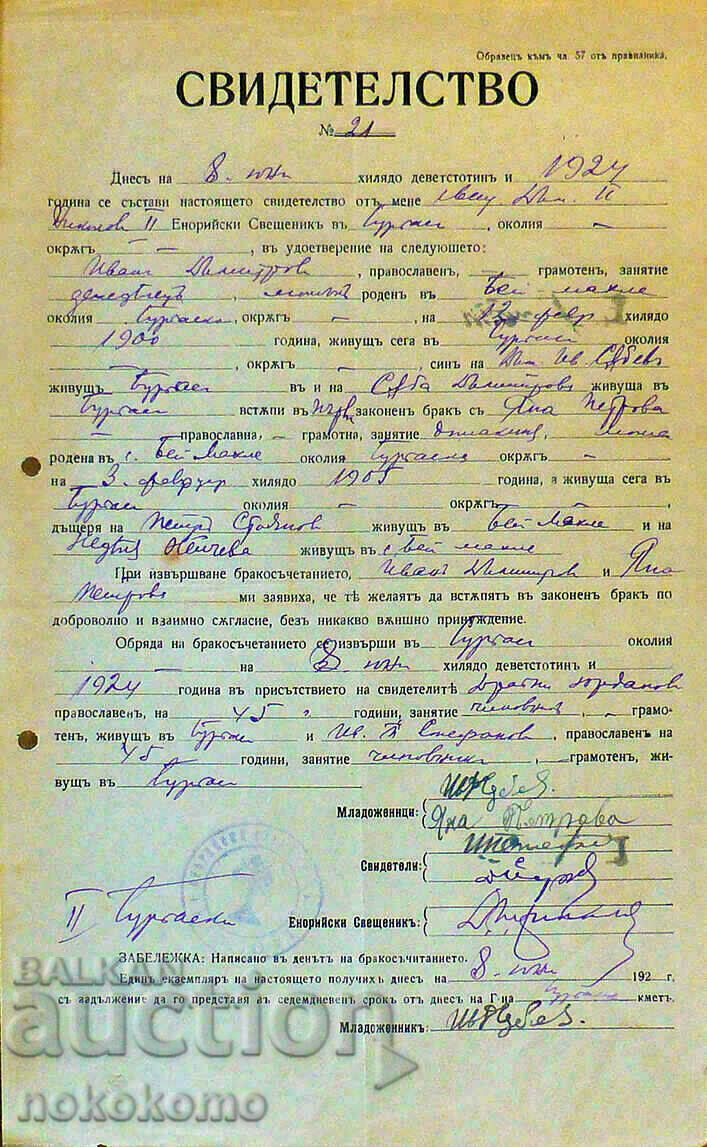 Образецъ къмъ чл. 57 отъ правилника.
СВИДЕТЕЛСТВО
№ 21
Днесъ на 8. юни хилядо деветстотинъ и 1924
година се състави настоящето свидетелство отъ мене свещ. Дим. П
Николовъ II Енорийски Свещеникъ въ Бургасъ, околия —
окрѫгъ — —, въ удоетверение на следующето:
Иванъ Димитровъ, православенъ, — грамотенъ, занятие
земеделецъ, момъкъ роденъ въ Бей махле
околия Бургаска, окрѫгъ —, на 12 февр хилядо
1900 година, живущъ сега въ Бургасъ околия
—, окрѫгъ — —, синъ на Дим. Ив. Събевъ
живущъ Бургасъ въ и на Съба Димитрова живуща въ
Бургасъ встѫпи въ първи законенъ бракъ съ Яна Петрова
— православна, — грамотна, занятие домакиня, мома
родена въ с. Бей Махле околия Бургаска окрѫгъ —
на 3. февруар хилядо 1905 година, а живуща сега въ
Бургасъ околия — окрѫгъ — —
дъщеря на Петъръ Стояновъ живущъ въ Бей Махле и на
Недѣля Ненчева живущъ въ с. Бей махле
При извършване бракосъчетанието, Иванъ Димитровъ и Яна
Петрова ми заявиха, че тѣ желаятъ да встѫпятъ въ законенъ бракъ по
доброволно и взаимно сѫгласие, безъ никакво вѫншно принуждение.
Обряда на бракосъчетанието се извърши въ Бургасъ околия
— на 8 юни хилядо деветстотинъ и
1924 година въ присътствието на свидетелитѣ Братни Юрдановъ
православенъ, на 45 г. години, занятие чиновникъ, — грамо-
тенъ, живущъ въ Бургасъ и Ив. П. Стефановъ, православенъ на
45 години, занятие чиновникъ, — грамотенъ, жи-
вущъ въ Бургасъ
Младоженици: Ив Д Събев.
Яна Петрова
Свидетели:
II Бургаски Енорийски Свещеникъ:
ЗАБЕЛЕЖКА: Написано въ денътъ на бракосъчетанието.
Единъ екземпляръ на настоящето получихъ днесъ на 8 юни 192 г.
съ задължение да го представя въ седемдневенъ срокъ отъ днесъ на Г-на Бургаски кметъ.
Младоженникъ: Ив Д Събев.
BALKAN
auction
nokokomo